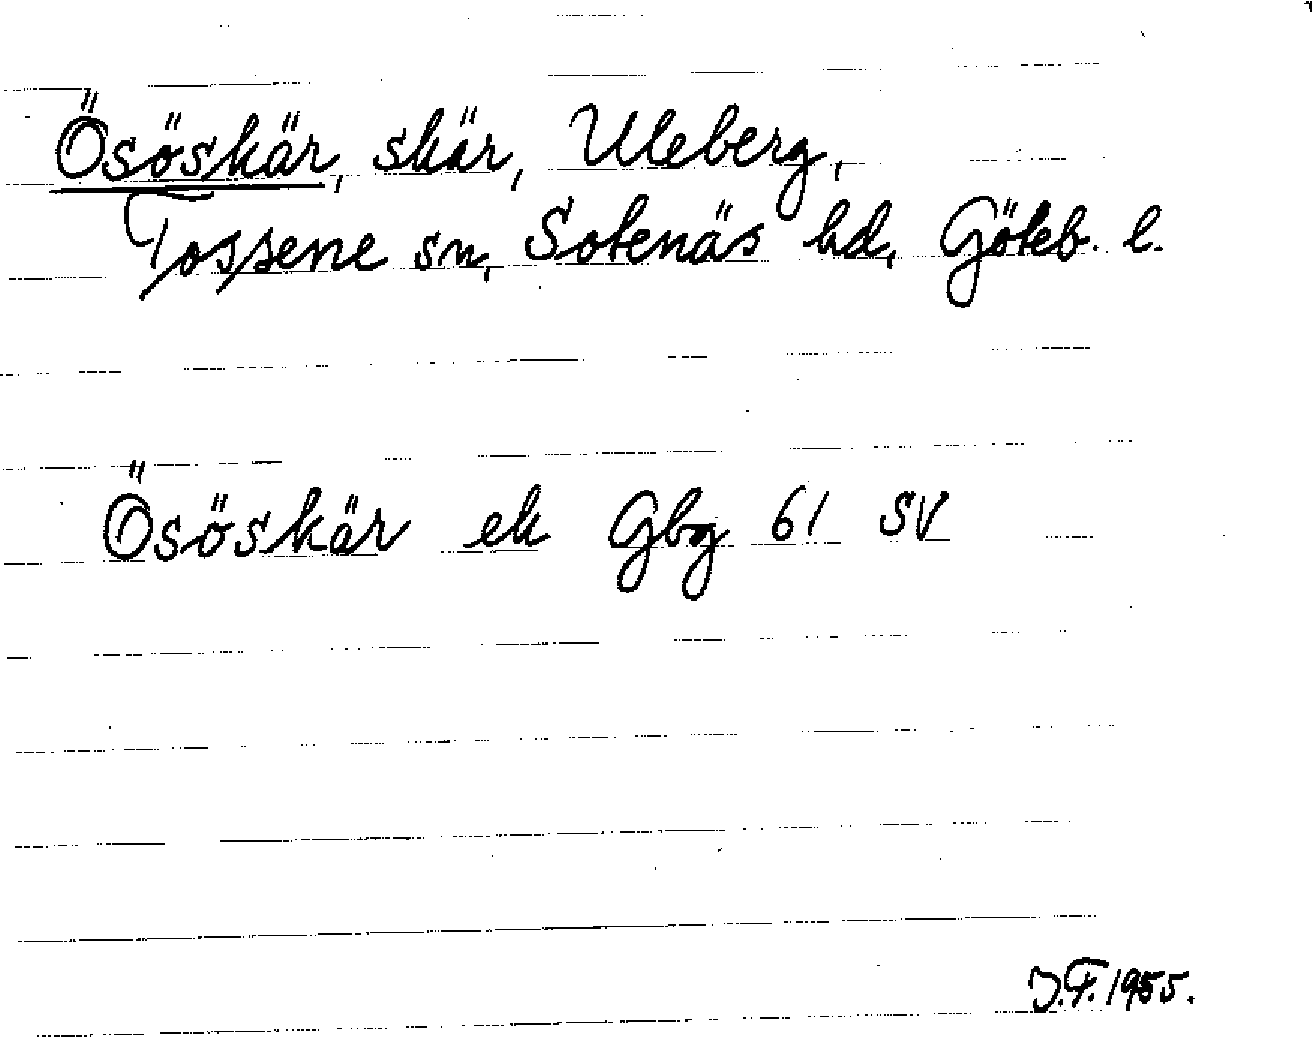 Ösöskär, skär, Uleberg,
Tossene sn, Sotenäs hd, Göteb. l.
Ösöskär ek Gbg 61 SV
J.F. 1955.